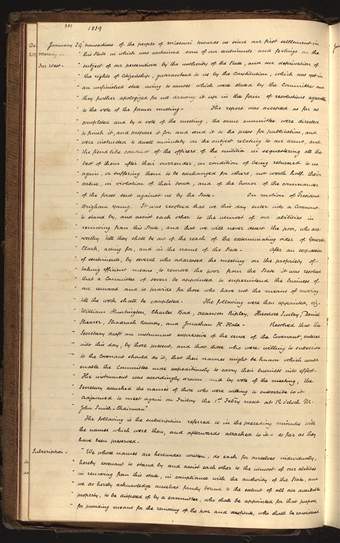 1839
January 29 transactions of the people of Missouri towards us since our first settlement in
this State in which was contained some of our sentiments and feelings on the
subject of our persecutions by the authority of the State, and our deprivation of
the rights of citizenship, guaranteed to us by the Constitution, which was yet in
an unfinished state owing to causes which were stated by the Committee and
they further apologized for not drawing it up in the form of resolutions agreeable
to the vote of the former meeting. The report was accepted as far as
completed and by a vote of the meeting, the same committee were directed
to finish it, and prepare it for and send it to the press for publication, and
were instructed to dwell minutely on the subject relating to our arms, and
the fiend like conduct of the officers of the militia in sequestering all the
best of them after their surrender, on condition of being returned to us
again, or suffering them to be exchanged for others, not worth half their
value, in violation of their bond, and of the honor of the commander
of the forces sent against us by the State. On motion of President
Brigham Young, It was resolved that we this day enter into a Covenant
to stand by and assist each other to the utmost of our abilities in
removing from this State, and that we will never desert the poor, who are
worthy, till they shall be out of the reach of the exterminating order of General
Clark, acting for, and in the name of the State. After an expression
of sentiments, by several who addressed the meeting on the propriety of
taking efficient means to remove the poor from the State it was resolved
that a Committee of seven be appointed to superintend the business of
our removal and to provide for those who have not the means of moving
till the work shall be completed. The following were then appointed, viz.
William Huntington, Charles Bird, Alanson Ripley, Theodore Turley, Daniel
Shearer, Shadrach Roundy, and Jonathan H. Hale. Resolved that the
Secretary draft an instrument expressive of the sense of the Covenant, entered
into this day, by those present, and that those who were willing to subscribe
to the Covenant should do it, that their names might be known which would
enable the Committee more expeditiously to carry their business into effect.
The instrument was accordingly drawn and by vote of the meeting, the
Secretary attached the names of those who were willing to subscribe to it.
Adjourned to meet again on Friday the 1st Feby next at 12 o'clock M.
John Smith Chairman"
The following is the subscription referred to in the preceding minutes with
the names which were then, and afterwards attached to it - so far as they
have been preserved.
Subscription - "We whose names are hereunder written, do each for ourselves individually,
hereby covenant to stand by and assist each other to the utmost of our abilities
in removing from this state, in compliance with the authority of the State, and
we do hereby acknowledge ourselves firmly bound to the extent of all our available
property, to be disposed of by a committee, who shall be appointed for that purpose,
for providing means for the removing of the poor and destitute, who shall be considered